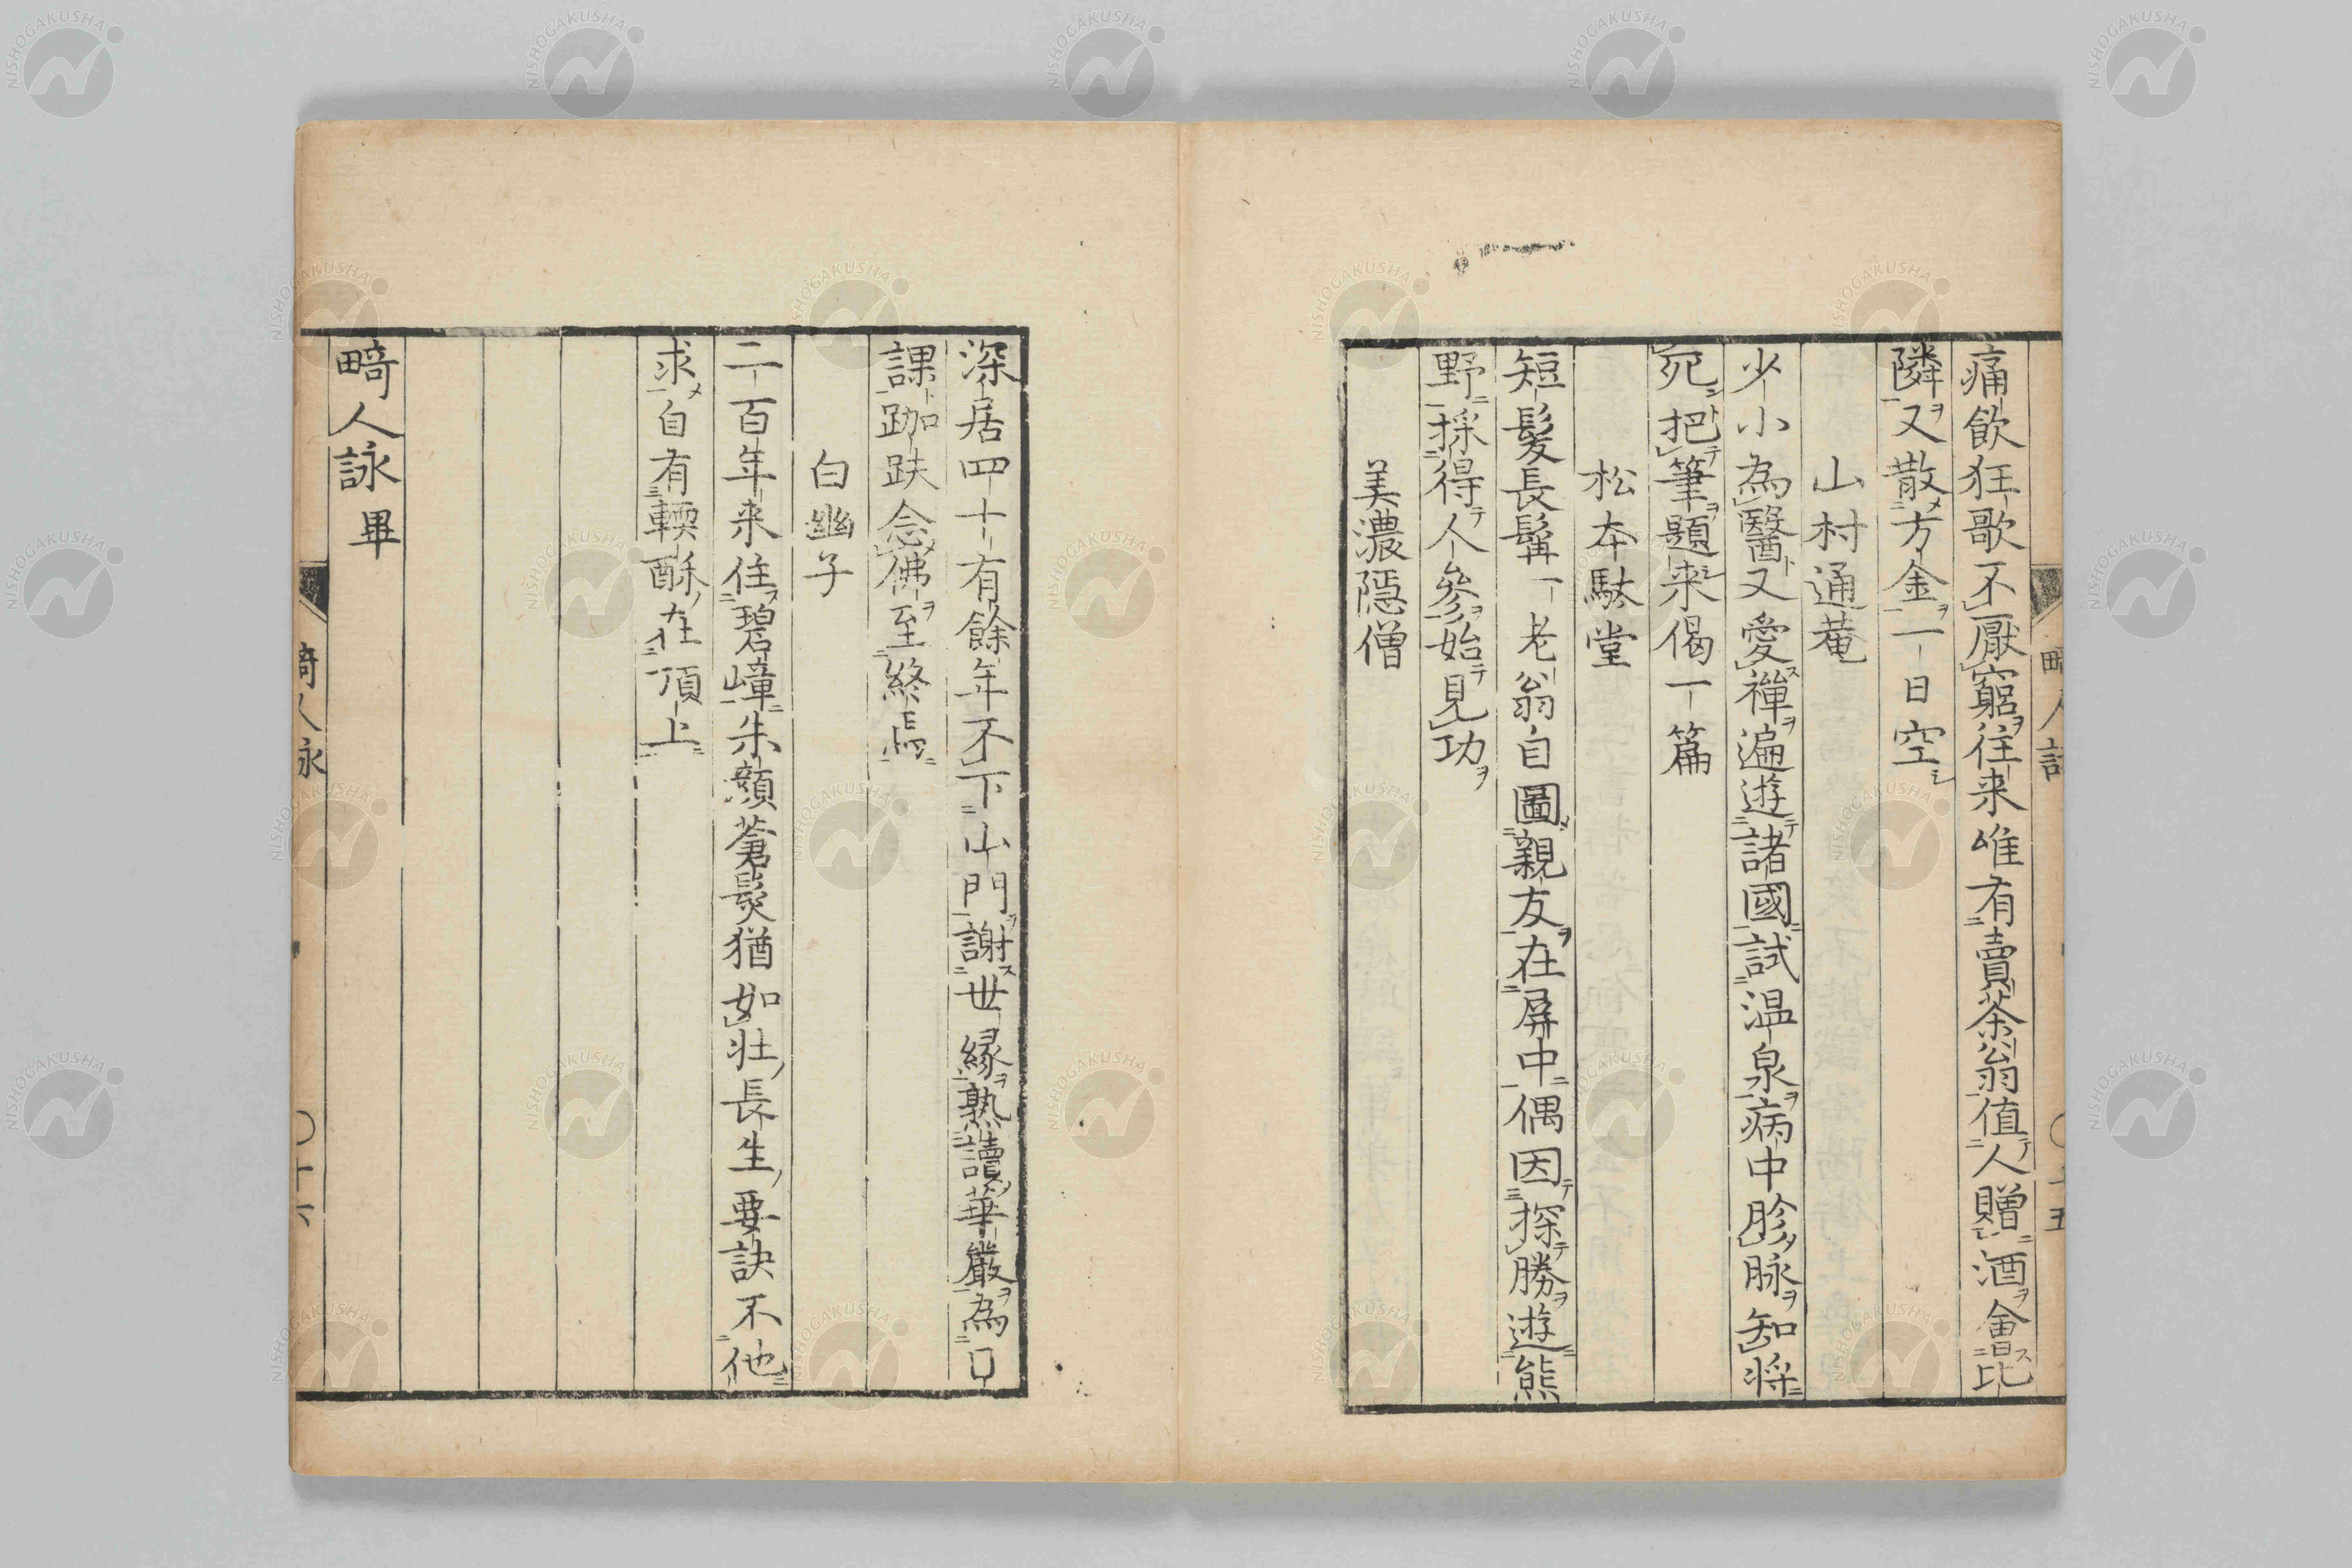 痛飲狂歌不厭窮往来唯有賣茶翁值人贈酒會比
隣又散方金一日空
山村通菴
少小為醫又愛禪遍遊諸國試温泉病中胗脉知将
死把筆題来偈一篇
松本駄堂
短髮長髯一老翁自圖親友在屏中偶因探勝遊熊
野採得人參始見功
美濃隠僧
深居四十有餘年不下山門謝世縁熟讀華嚴為口
課跏趺念佛至終焉
白幽子
二百年来住碧嶂朱顔蒼髮猶如壮長生要訣不他
求自有輭酥在頂上
畸人詠畢
畸人詠
〇十六
NISHOGAKUSHA